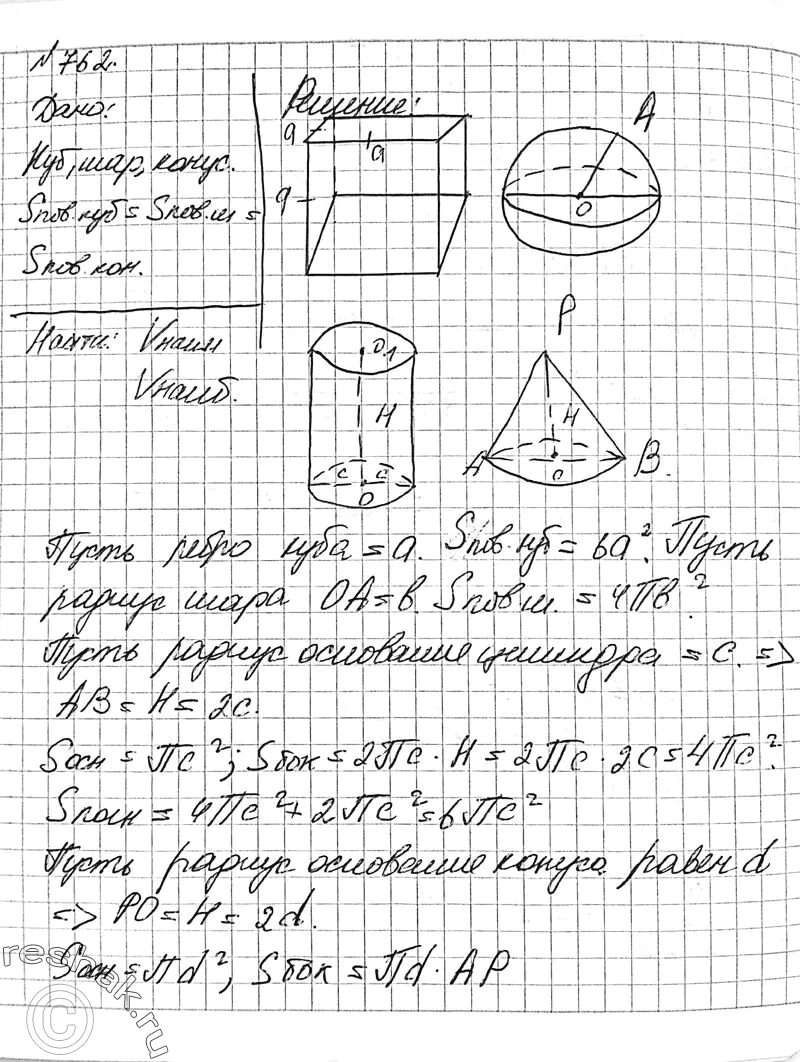 №762.
Дано:
Куб, шар, конус.
Sпов.куб = Sпов.ш =
Sпов.кон.
Найти: Vнаим
Vнаиб.
Решение:
a
a
a
A
O
O1
H
c c
O
P
H
A O B.
Пусть ребро куба = a. Sпов.куб = 6a². Пусть
радиус шара OA = в. Sпов.ш. = 4Пв².
Пусть радиус основание цилиндра = c. =>
AB = H = 2c.
Sосн = Пc²; Sбок = 2Пc · H = 2Пc · 2c = 4Пc².
Sполн = 4Пc² + 2Пc² = 6Пc²
Пусть радиус основание конуса равен d
=> PO = H = 2d.
Sосн = Пd², Sбок = Пd · AP
reshak.ru
©